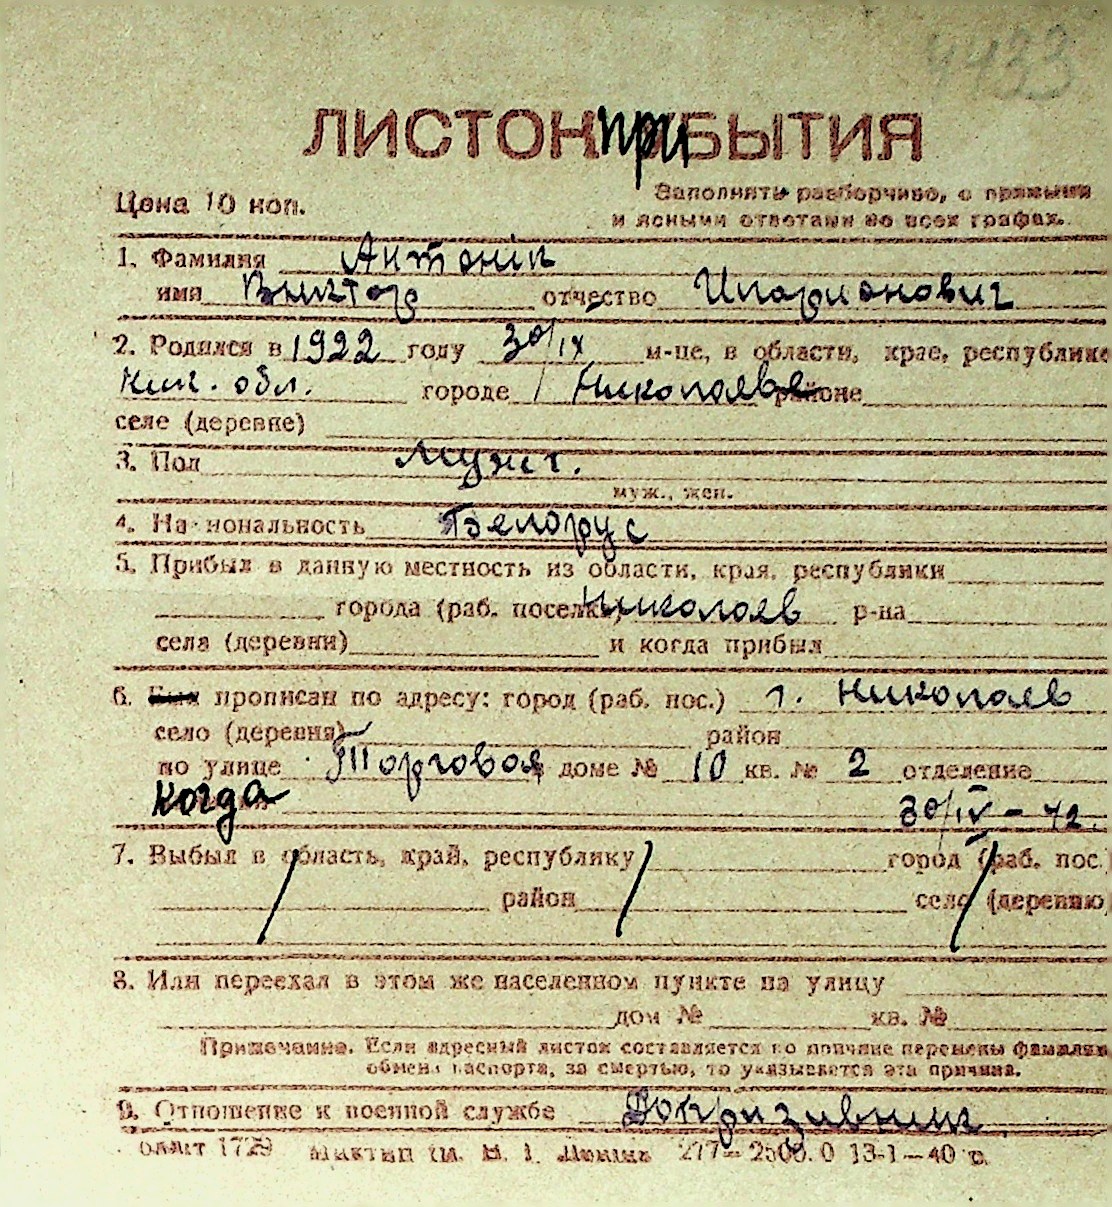 4433
ЛИСТОК ПРИБЫТИЯ
Цена 10 коп.
Заполнять разборчиво, с прямыми
и ясными ответами во всех графах.
1. Фамилия Антонік
имя Виктор отчество Иларионович
2. Родился в 1922 году 30/IX м-це, в области, крае, республике
Ник. обл. городе Николаеве районе
селе (деревне)
3. Пол Мужч.
муж., жен.
4. Национальность Белорус
5. Прибыл в данную местность из области, края, республики
города (раб. поселка) Николаев р-на
села (деревни) и когда прибыл
6. прописан по адресу: город (раб. пос.) г. Николаев
село (деревня) район
по улице Торговой доме № 10 кв. № 2 отделение
когда 30/IV - 42
7. Выбыл в область, край, республику город (раб. пос.)
район село (деревню)
8. Или переехал в этом же населенном пункте на улицу
дом № кв. №
Примечание. Если адресный листок составляется по причине перемены фамилии
обмена паспорта, за смертью, то указывается эта причина.
9. Отношение к военной службе Допризивник
1729 277— 2500.0 13-1—40